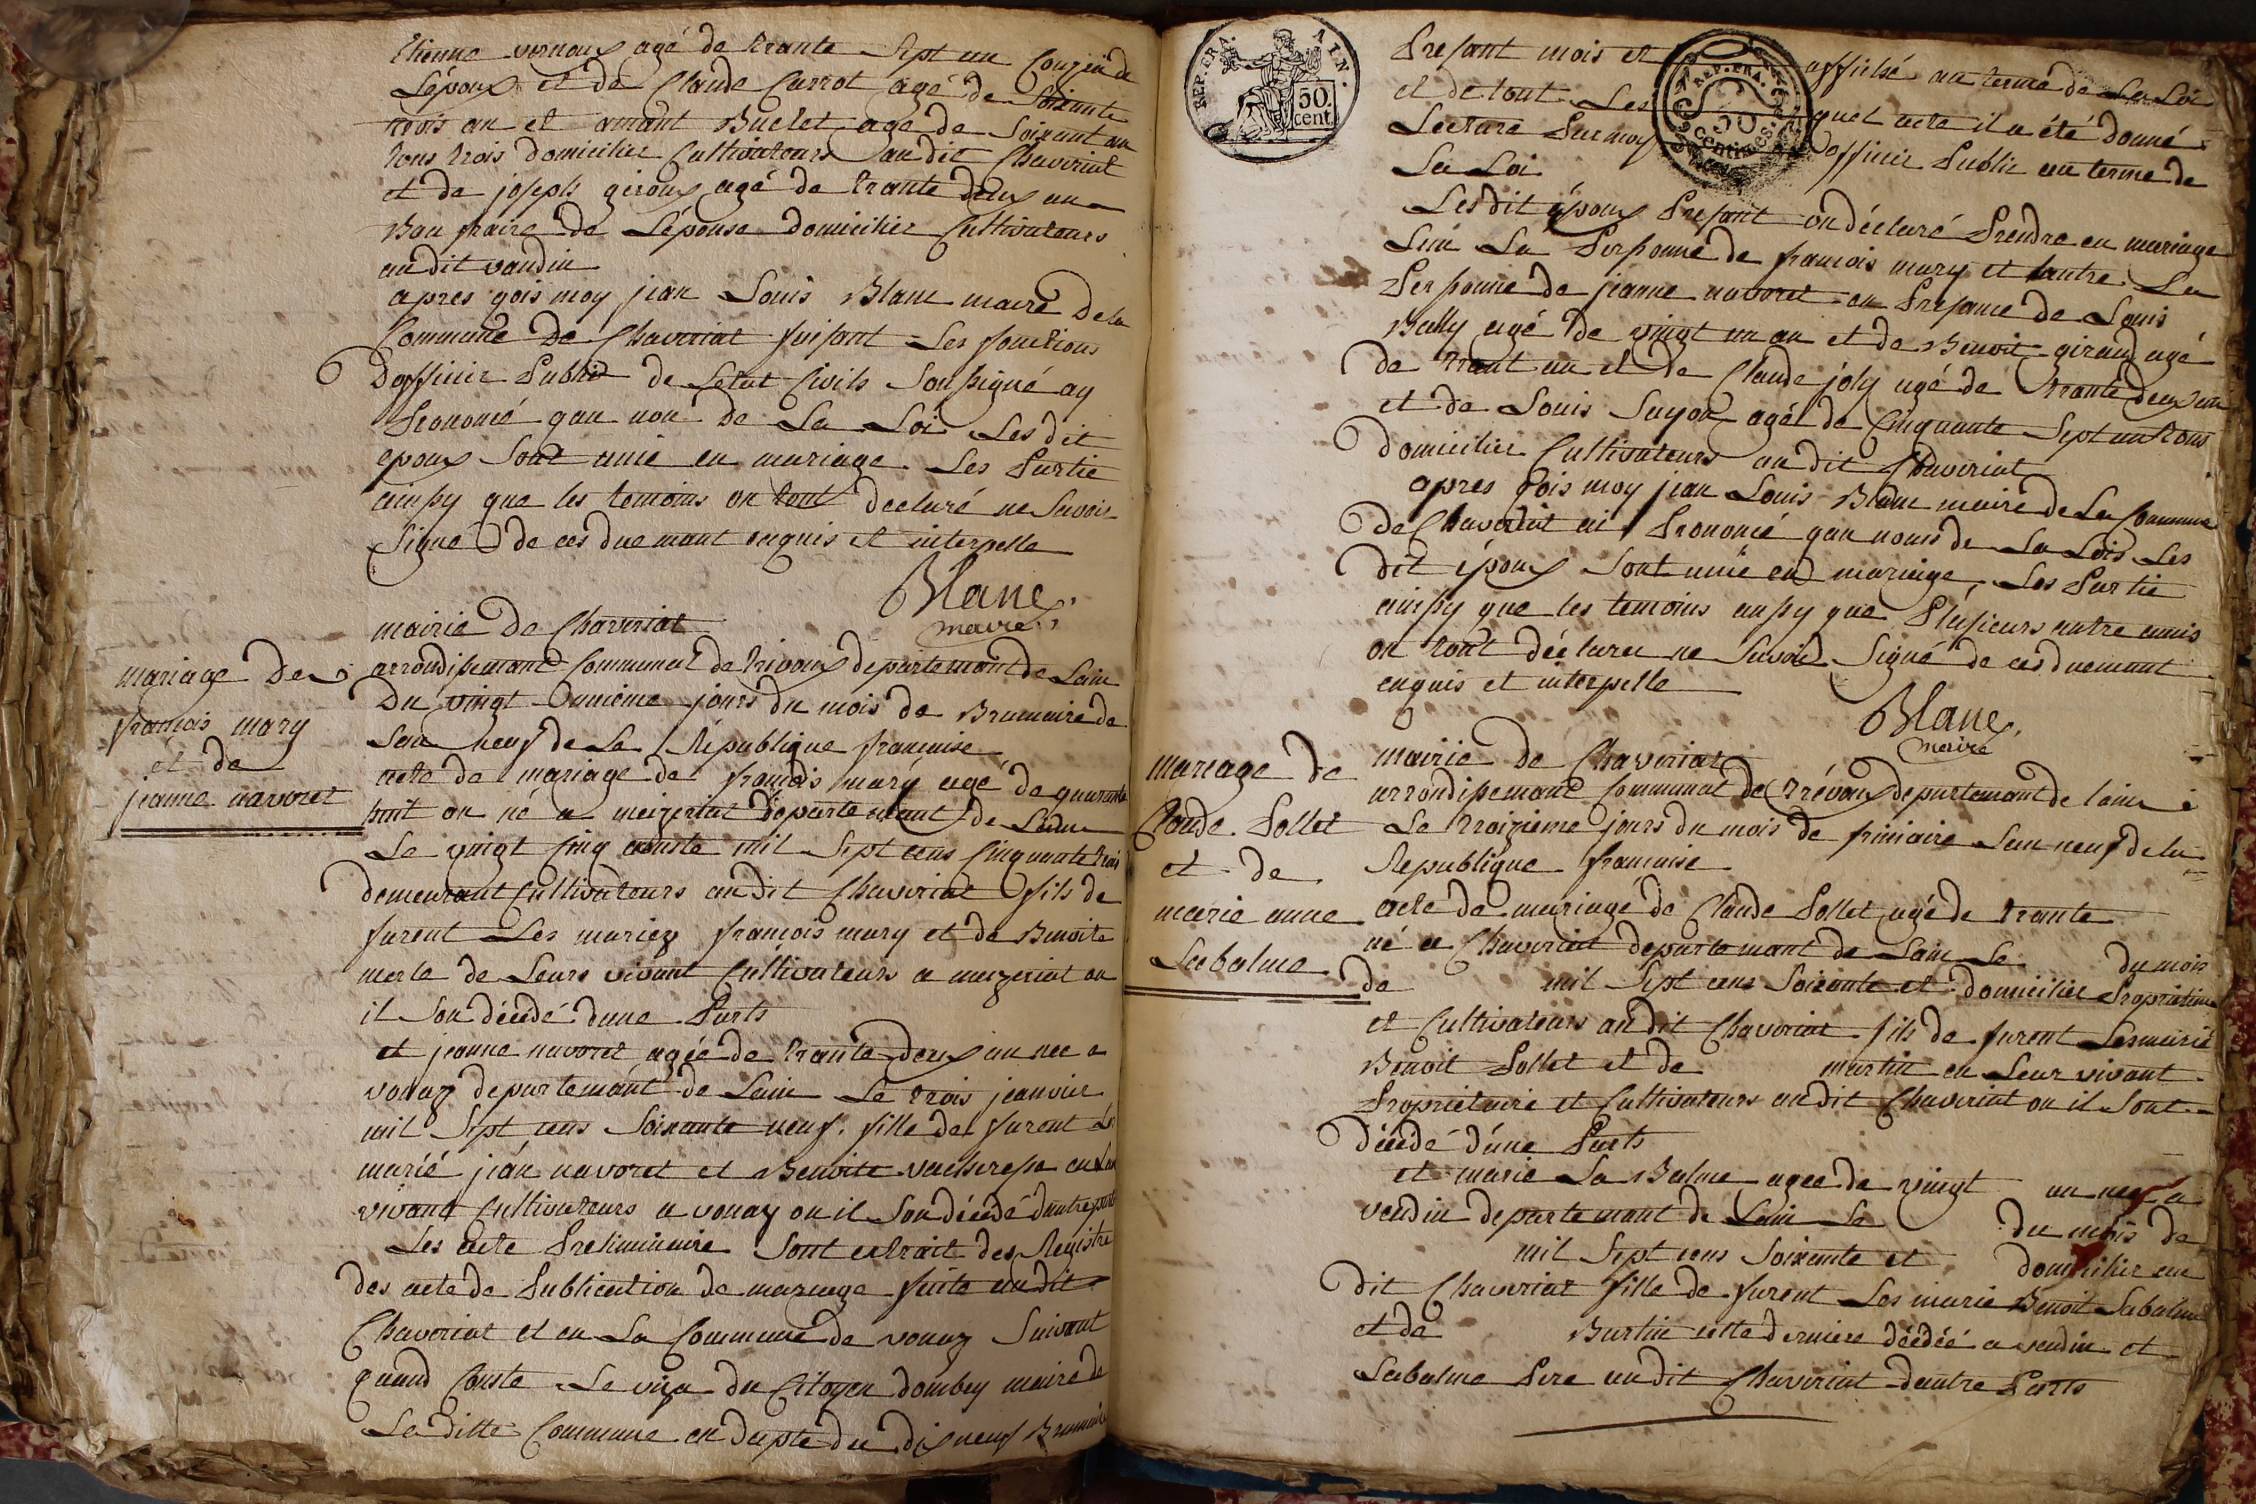 Etienne vernoux agé de trante Sept an Couzin de
Lépoux et de Claude Carrot agé de Soixante
trois an et amant Buclet age de Soixant an
tous trois domicilier Cultivateurs au dit Chaveriat
et de joseph giroux agé de trante deux an
Bau fraire de Lépouse domicilier Cultivateurs
au dit vandin
apres qois moy jean Louis Blanc maire de la
Commune de Chaveriat faisant Les fonctions
dofficier Public de Letat Civils Soussigné ay
Prononcé qau non de La Loi Les dit
epoux Sont unie en mariage. Les Partie
ainsy que les temoins on tout declaré ne Savoir
Signé de ces duemant enquis et interpelle
Blanc
maire
mairie de Chaveriat
mariage de
francois mary
et de
jeanne navoret
arrondissemant Communal de trivoux departemant de Lain
Du vingt Onnieme jours du mois de Brumaire de
Lan neuf de La République francaise
acte de mariage de francois mary agé de quarante
huit an né a meizeriat departemant de Lain
Le vingt Cinq aouste mil Sept cens Cinquante trois
demeurant Cultivateurs au dit Chaveriat fils de
furent Les mariez francois mary et de Benoite
merle de Leurs vivant Cultivateurs a mezeriat ou
il Son décédé dune Parts
et jeanne navoret agée de trante deux an nee a
vonaz departemant de Lain Le trois jeanvier
mil Sept cens Soixante neuf. fille de furent Les
marié jean navoret et Benoite vacheresse en Leur
vivant Cultivateurs a vonay ou il Son décédé dautre part
Les acte Preliminaire Sont extrait des Registre
des acte de Publication de mariage faite au dit
Chaveriat et en La Commune de vonaz Suivant
quand Conste Le viza du Citoyen dombey maire de
La ditte Commune en dapte du dix neuf Brumaire
REP. FRA. AIN.
50. cent.
REP. FRA.
50 Centimes
Presant mois et affiché au terme de La Loi
et de tout Les quel acte il a été donné
Lecture Par moy officier Public au terme de
La Loi
Les dit époux Presant on déclaré Prendre en mariage
Lun La Personne de francois mary et Lautre La
Personne de jeanne navoret en Presance de Louis
Bully agé de vingt un an et de Benoit giraud agé
de trant an et de Claude joly agé de trante deux an
et de Louis Luyon agé de Cinquante Sept an tous
domicilier Cultivateurs au dit Chaveriat
apres qois moy jean Louis Blanc maire de La Commune
de Chaveriat ai Prononcé qau nom de La Lois Les
dit époux Sont unie en mariage, Les Partie
ainsy que les temoins aussy que Plusieurs autre amis
on tout déclarer ne Savoir Signé de ces duemant
enquis et interpelle
Blanc
maire
mariage de
Claude Pollet
et de
marie anne
Labalme
mairie de Chaveriat
arrondissemant Communal de trévoux departemant de lain
Le troizieme jours du mois de frimaire Lan neuf de la
République francaise
acte de mariage de Claude Pollet agé de trante
né a Chaveriat departemant de Lain Le du mois
de mil Sept cens Soixante et domicilier Proprietaire
et Cultivateurs au dit Chaveriat fils de furent Les marié
Benoit Pollet et de martin en Leur vivant
Proprietaire et Cultivateurs au dit Chaveriat ou il Sont
décédé d'une Parts
et marie La Balme agee de vingt an nee a
vendin departemant de Lain Le du mois de
mil Sept cens Soixante et domicilier au
dit Chaveriat fille de furent Les marie Benoit Labalme
et de Burtin cette derniere décédée a vendin et
Labalme Pere au dit Chaveriat dautre Parts